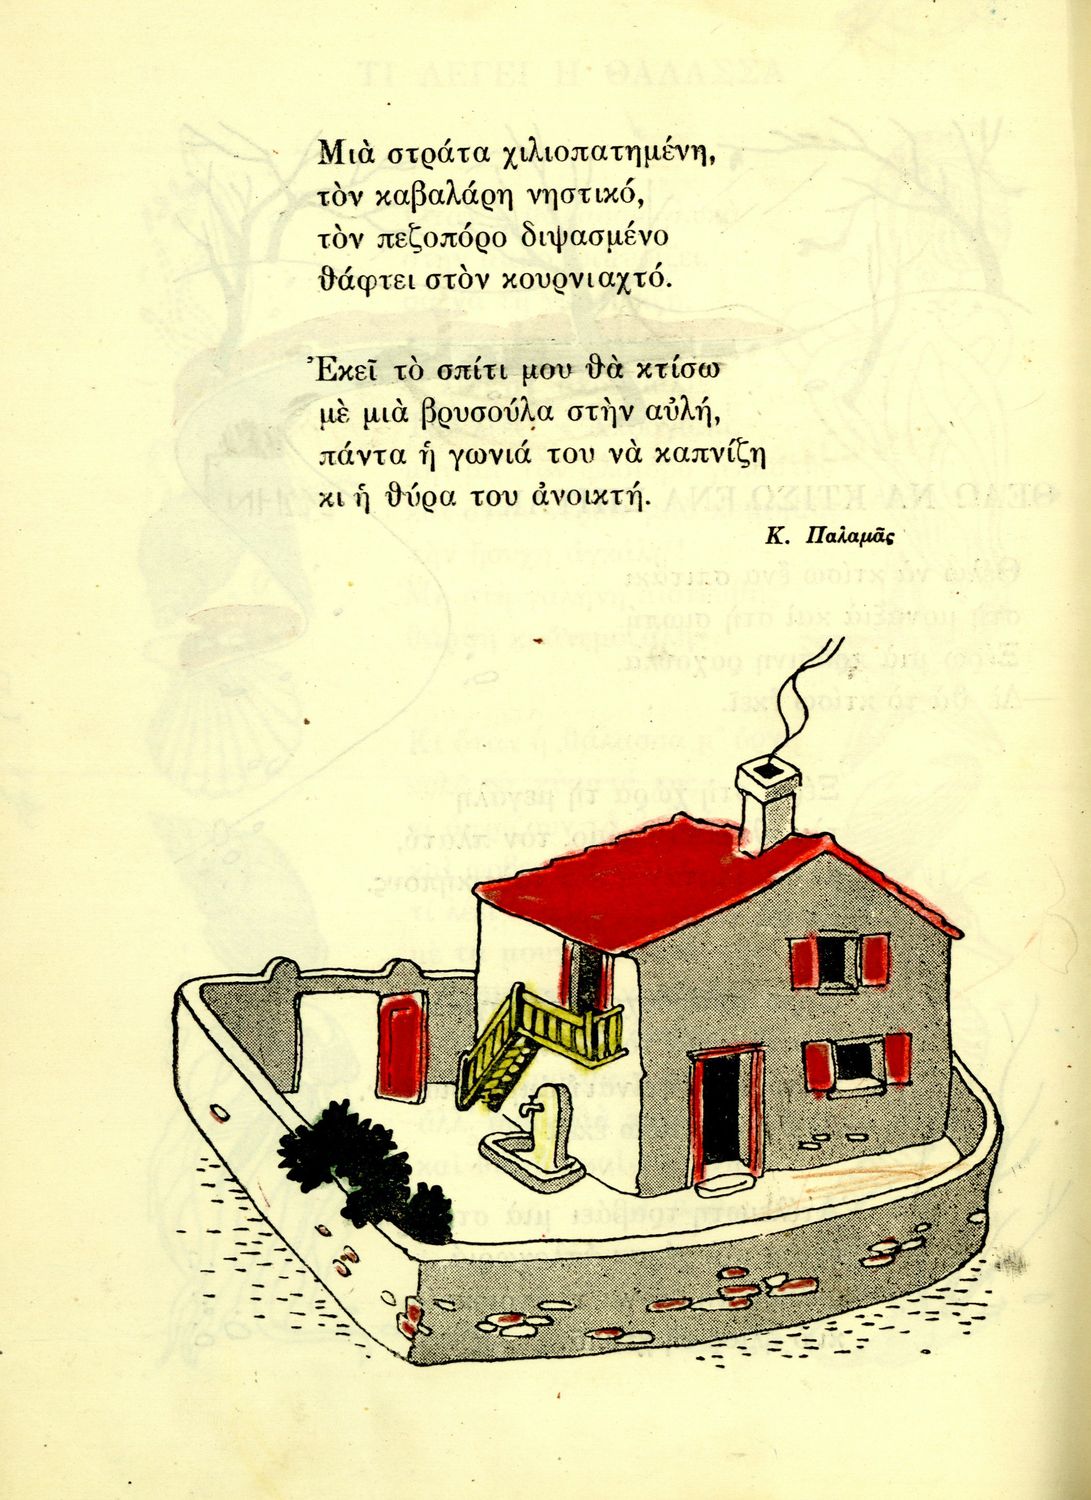 Μιὰ στράτα χιλιοπατημένη,
τὸν καβαλάρη νηστικό,
τὸν πεζοπόρο διψασμένο
θάφτει στὸν κουρνιαχτό.
Ἐκεῖ τὸ σπίτι μου θὰ κτίσω
μὲ μιὰ βρυσούλα στὴν αὐλή,
πάντα ἡ γωνιά του νὰ καπνίζη
κι ἡ θύρα του ἀνοικτή.
Κ. Παλαμᾶς